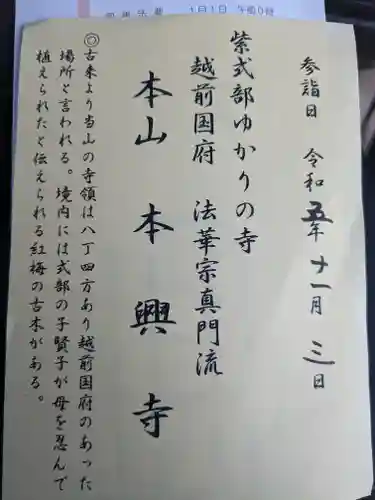 参詣日　令和五年十一月三日
紫式部ゆかりの寺
越前国府　法華宗真門流
本山　本興寺
◎古来より当山の寺領は八丁四方あり越前国府のあった
場所と言われる。境内には式部の子賢子が母を忍んで
植えられたと伝えられる紅梅の古木がある。
1月1日 午前0時